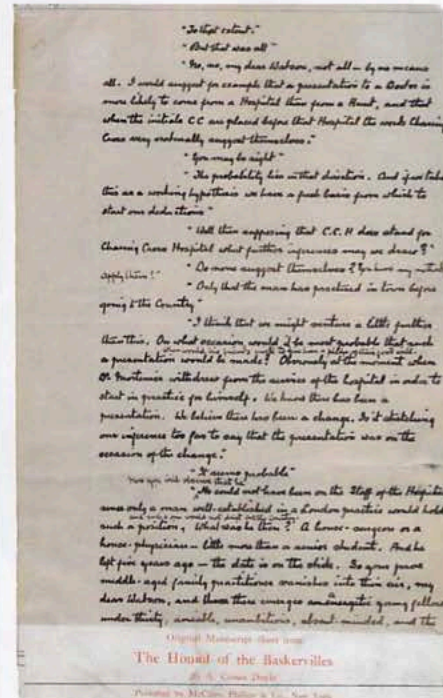 "To that extent."
"But that was all"
"No, no, my dear Watson, not all – by no means
all. I would suggest for example that a presentation to a Doctor is
more likely to come from a Hospital than from a Hunt, and that
when the initials CC are placed before that Hospital the words Charing
Cross very naturally suggest themselves."
"You may be right"
"The probability lies in that direction. And if we take
this as a working hypothesis we have a fresh basis from which to
start our deductions"
"Well then supposing that C.C.H does stand for
Charing Cross Hospital what further inferences may we draw?"
"Do none suggest themselves? You know my methods
apply them!"
"Only that the man has practised in town before
going to the Country"
"I think that we might venture a little further
than this. On what occasion would it be most probable that such
a presentation would be made? Obviously at the moment when
Dr. Mortimer withdrew from the service of the hospital in order to
start in practice for himself. We know there has been a
presentation. We believe there has been a change. Is it stretching
our inference too far to say that the presentation was on the
occasion of the change."
"It seems probable"
"Now you will observe that he
could not have been on the Staff of the Hospital
since only a man well-established in a London practice would hold
such a position, What was he then? A house-surgeon or a
house-physician – little more than a senior student. And he
left five years ago – the date is on the stick. So your grave
middle-aged family practitioner vanishes into thin air, my
dear Watson, and there emerges a young fellow
under thirty, amiable, unambitious, absent-minded, and the
Original Manuscript sheet from
The Hound of the Baskervilles
By A. Conan Doyle
Presented by McClure, Phillips & Co., New York